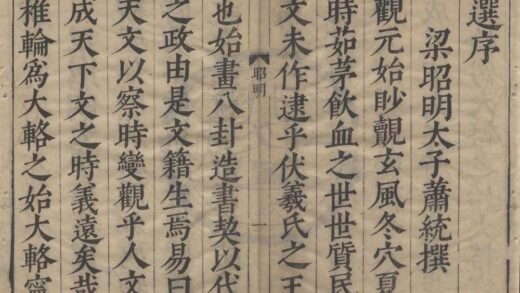 選序
梁昭明太子蕭統撰
觀元始眇覿玄風冬穴夏
時茹茅飲血之世世質民
文未作逮乎伏羲氏之王
昭明 一
也始畫八卦造書契以代
之政由是文籍生焉易曰
天文以察時變觀乎人文
成天下文之時義遠矣哉
椎輪爲大輅之始大輅寧